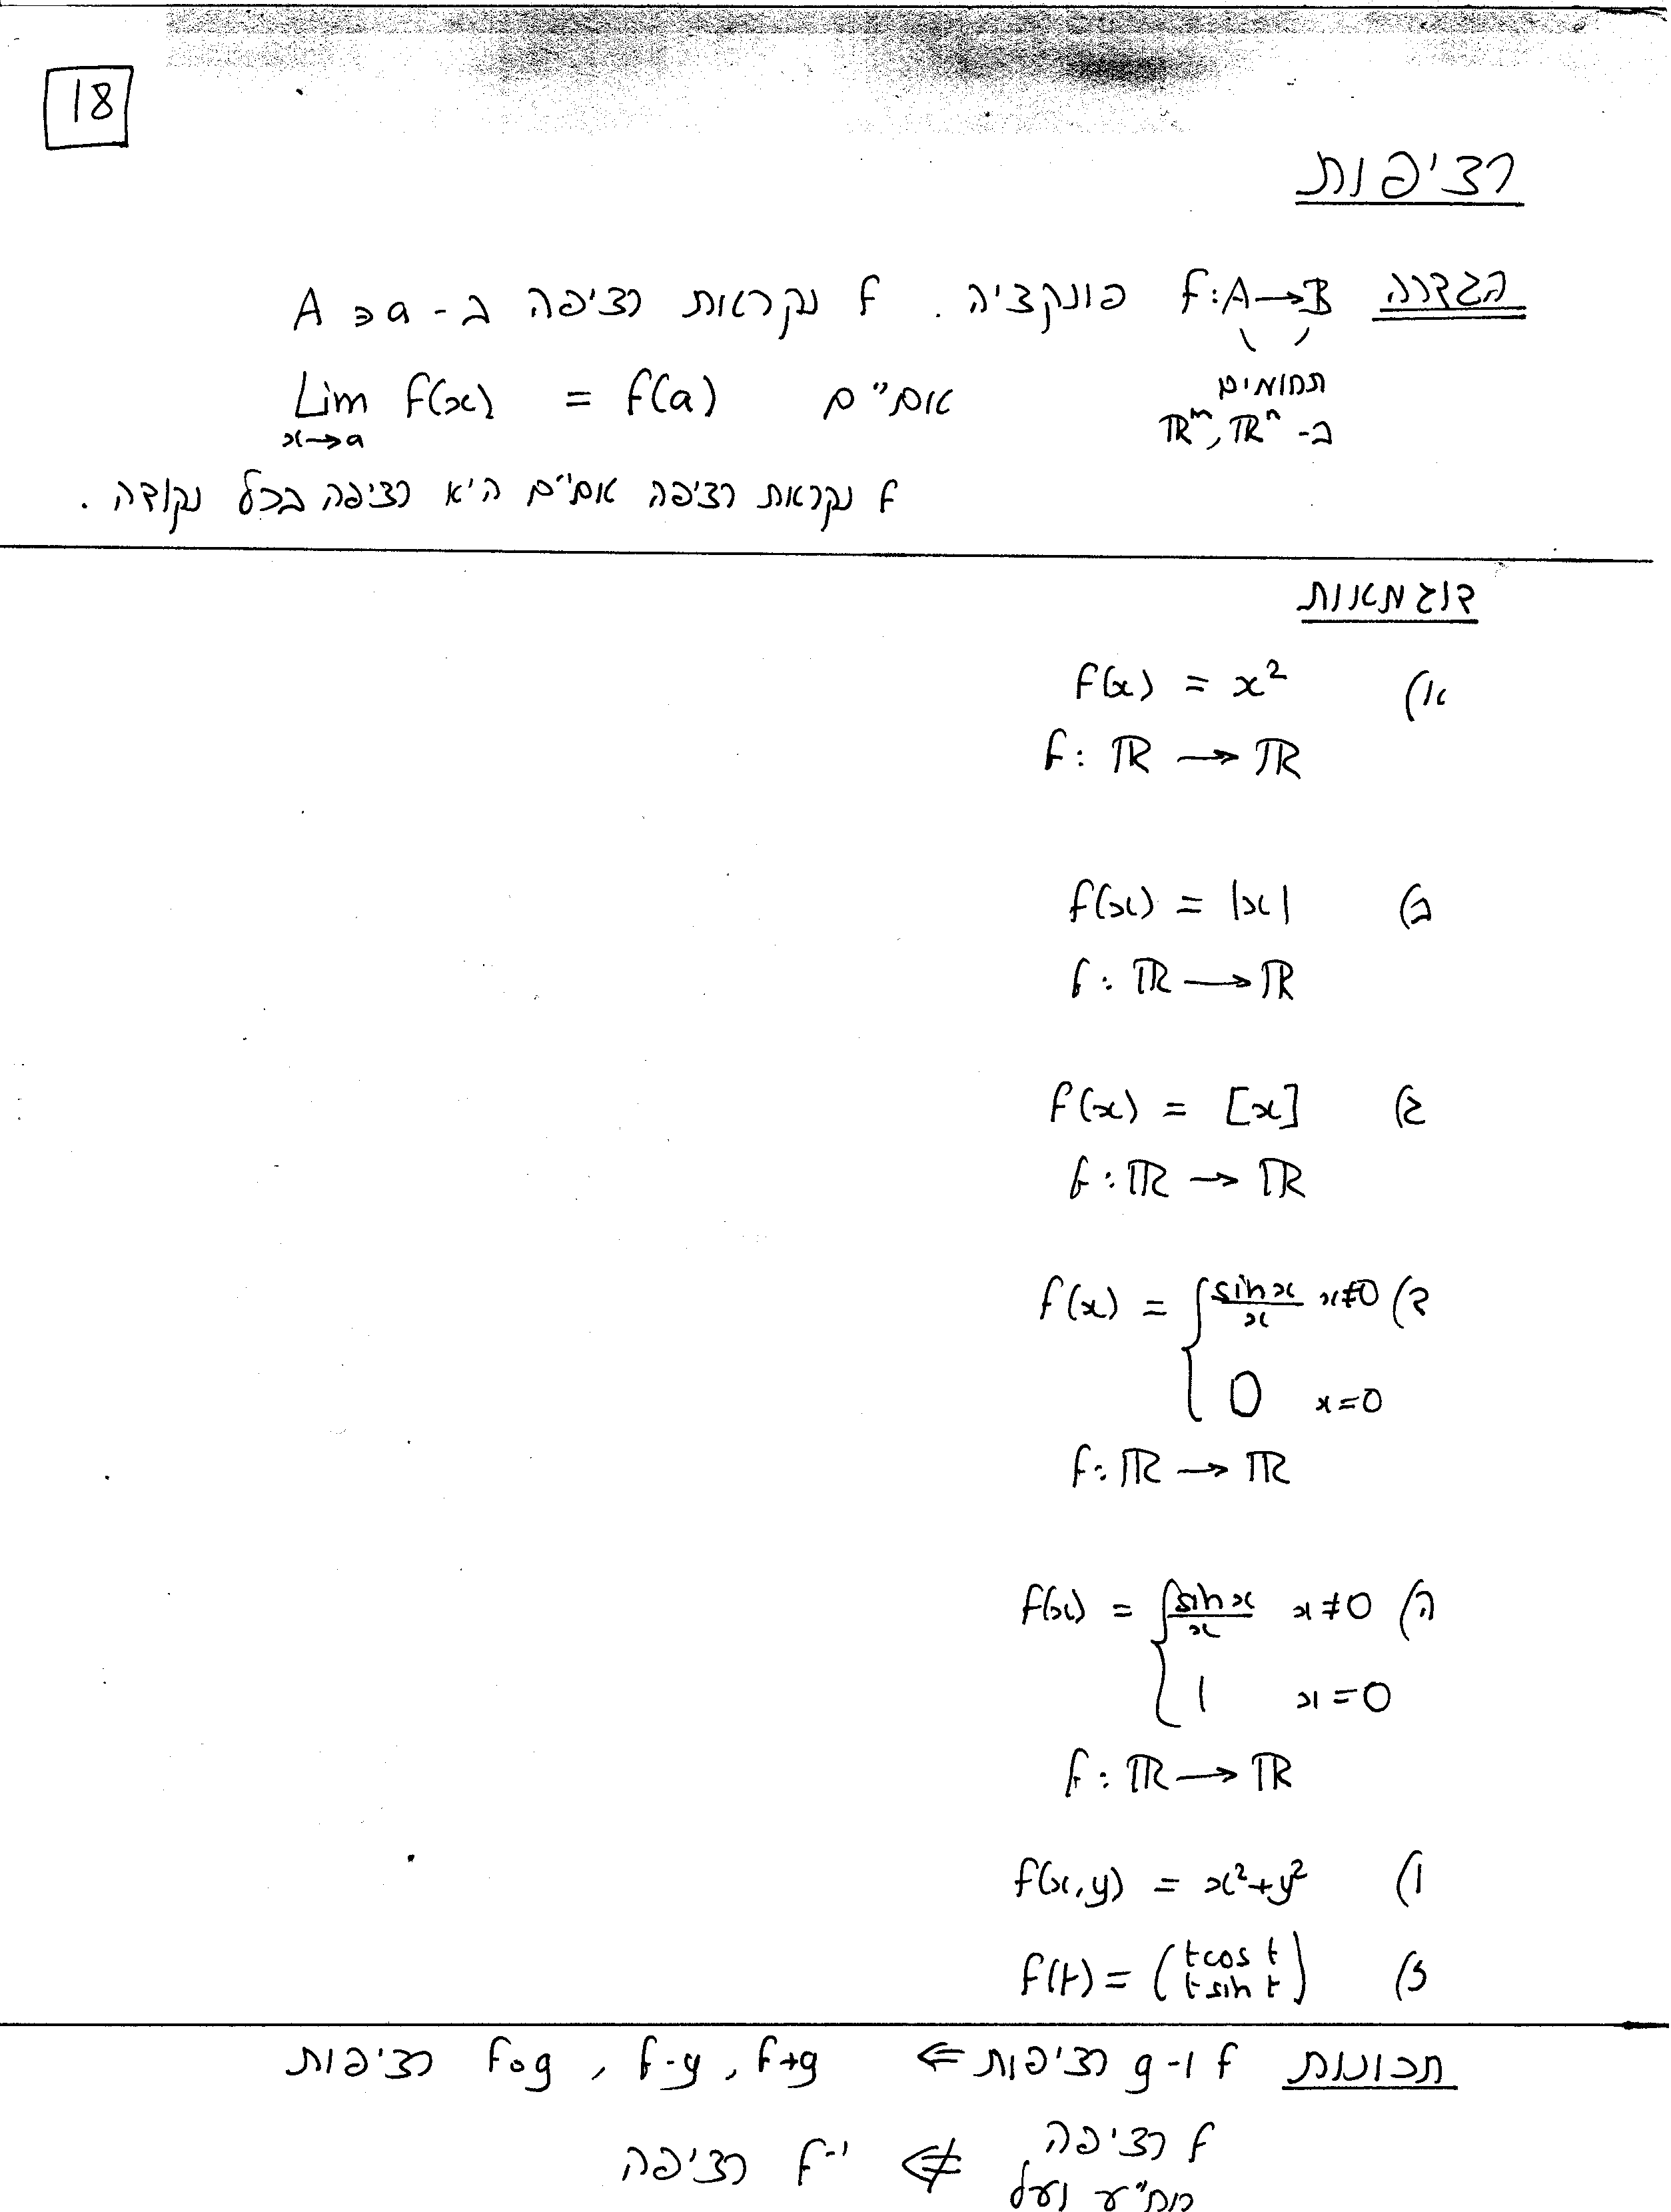 18
רציפות
הגדרה f:A→B פונקציה. f נקראת רציפה ב- a∈A
תחומים
ב- ℝᵐ, ℝⁿ
אם"ם Lim f(x) = f(a)
x→a
f נקראת רציפה אם"ם היא רציפה בכל נקודה.
דוגמאות
א) f(x) = x²
f: ℝ → ℝ
ב) f(x) = |x|
f: ℝ → ℝ
ג) f(x) = [x]
f: ℝ → ℝ
ד) f(x) = { sin x / x x≠0
0 x=0
f: ℝ → ℝ
ה) f(x) = { sin x / x x≠0
1 x=0
f: ℝ → ℝ
ו) f(x,y) = x²+y²
ז) f(t) = (t cos t
t sin t)
תכונות f ו-g רציפות ⇐ f+g, f-g, f∘g רציפות
f רציפה
חח"ע ועל ⇍ f⁻¹ רציפה